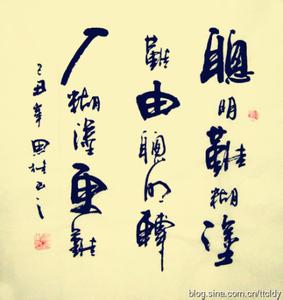 聰明難糊塗
難由聰明轉
入糊塗更難
己丑年
blog.sina.com.cn/ttcldy